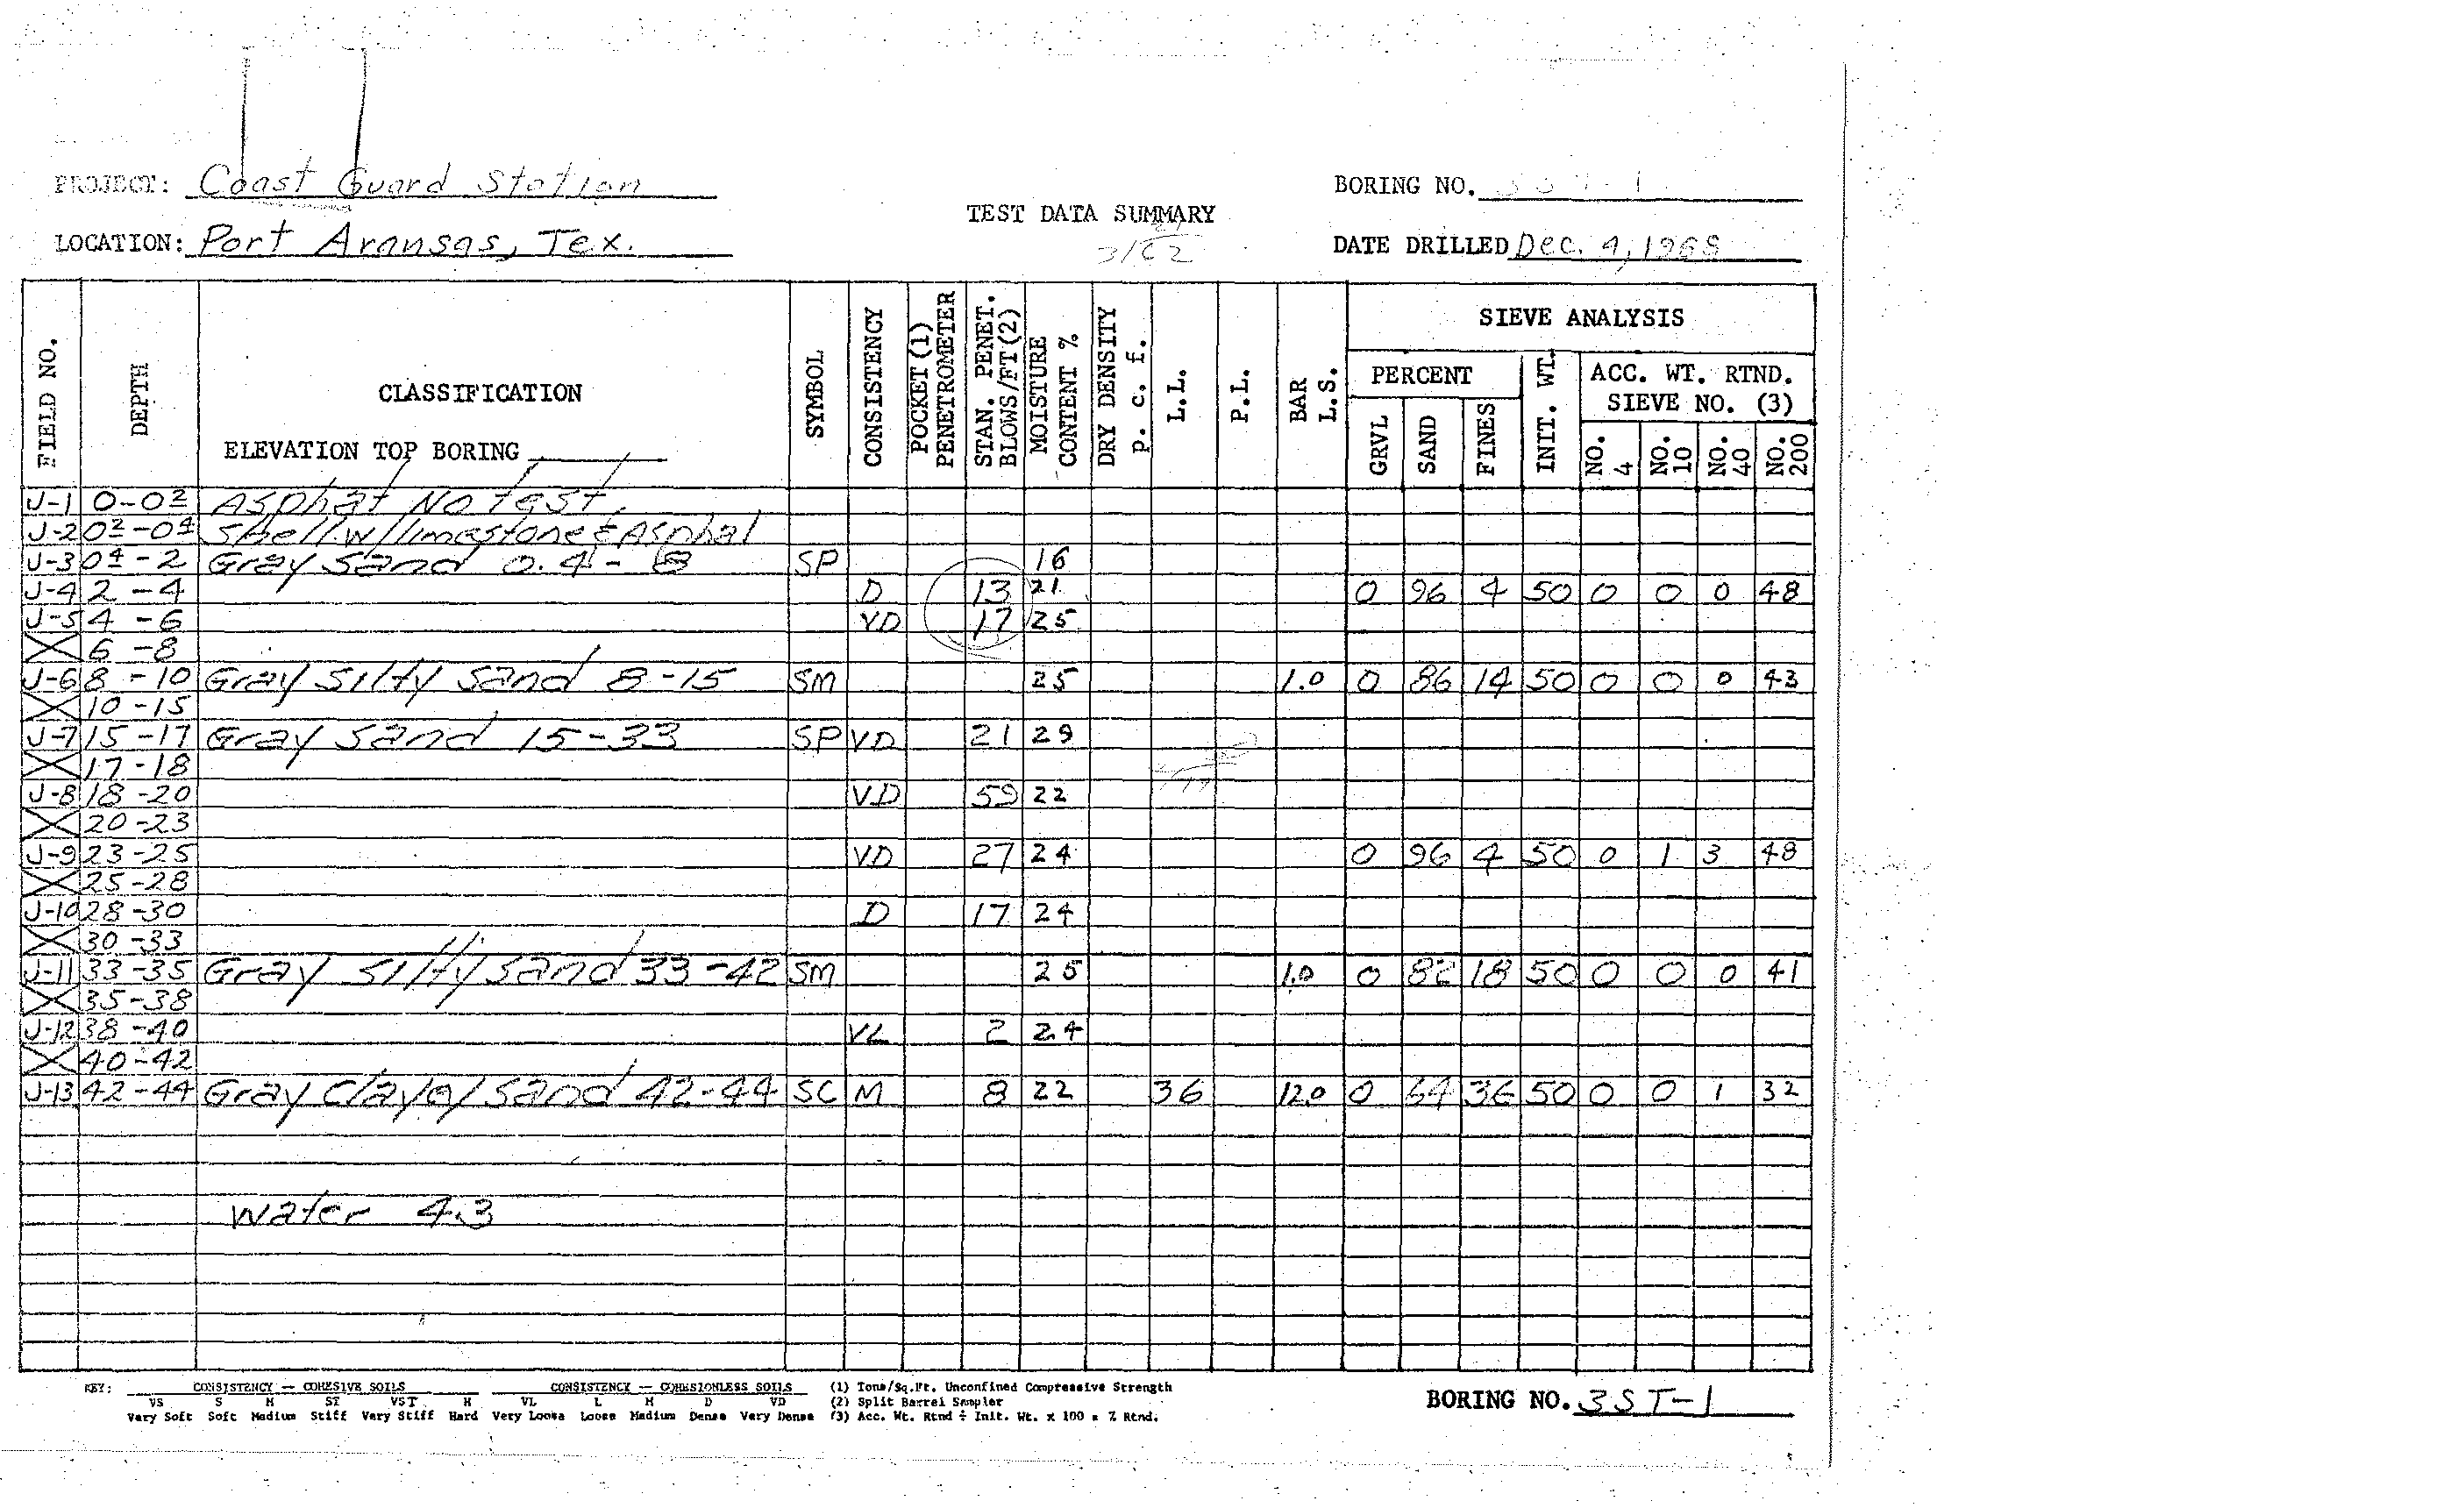 PROJECT: Coast Guard Station
BORING NO. 3ST-1
TEST DATA SUMMARY
LOCATION: Port Aransas, Tex.
3/62
DATE DRILLED Dec. 4, 1968
FIELD NO.
DEPTH
CLASSIFICATION
ELEVATION TOP BORING
SYMBOL
CONSISTENCY
POCKET (1) PENETROMETER
STAN. PENET. BLOWS/FT(2)
MOISTURE CONTENT %
DRY DENSITY p. c. f.
L.L.
P.L.
BAR L.S.
SIEVE ANALYSIS
PERCENT
GRVL
SAND
FINES
INIT. WT.
ACC. WT. RTND.
SIEVE NO. (3)
NO. 4
NO. 10
NO. 40
NO. 200
J-1 0-0² Asphat No test
J-2 0²-0⁴ Shell w/limestone & Asphal
J-3 0⁴-2 Gray Sand 0.4-8 SP 16
J-4 2-4 D 13 21 0 96 4 50 0 0 0 48
J-5 4-6 VD 17 25
X 6-8
J-6 8-10 Gray Silty Sand 8-15 SM 25 1.0 0 86 14 50 0 0 0 43
X 10-15
J-7 15-17 Gray Sand 15-33 SP VD 21 29
X 17-18
J-8 18-20 VD 59 22
X 20-23
J-9 23-25 VD 27 24 0 96 4 50 0 1 3 48
X 25-28
J-10 28-30 D 17 24
X 30-33
J-11 33-35 Gray Silty Sand 33-42 SM 25 1.0 0 82 18 50 0 0 0 41
X 35-38
J-12 38-40 VL 2 24
X 40-42
J-13 42-44 Gray Clayey Sand 42-44 SC M 8 22 36 12.0 0 64 36 50 0 0 1 32
Water 4.3
KEY: CONSISTENCY — COHESIVE SOILS CONSISTENCY — COHESIONLESS SOILS (1) Tons/Sq.Ft. Unconfined Compressive Strength
VS S M ST VST H VL L M D VD (2) Split Barrel Sampler
Very Soft Soft Medium Stiff Very Stiff Hard Very Loose Loose Medium Dense Very Dense (3) Acc. Wt. Rtnd ÷ Init. Wt. x 100 = % Rtnd.
BORING NO. 3ST-1